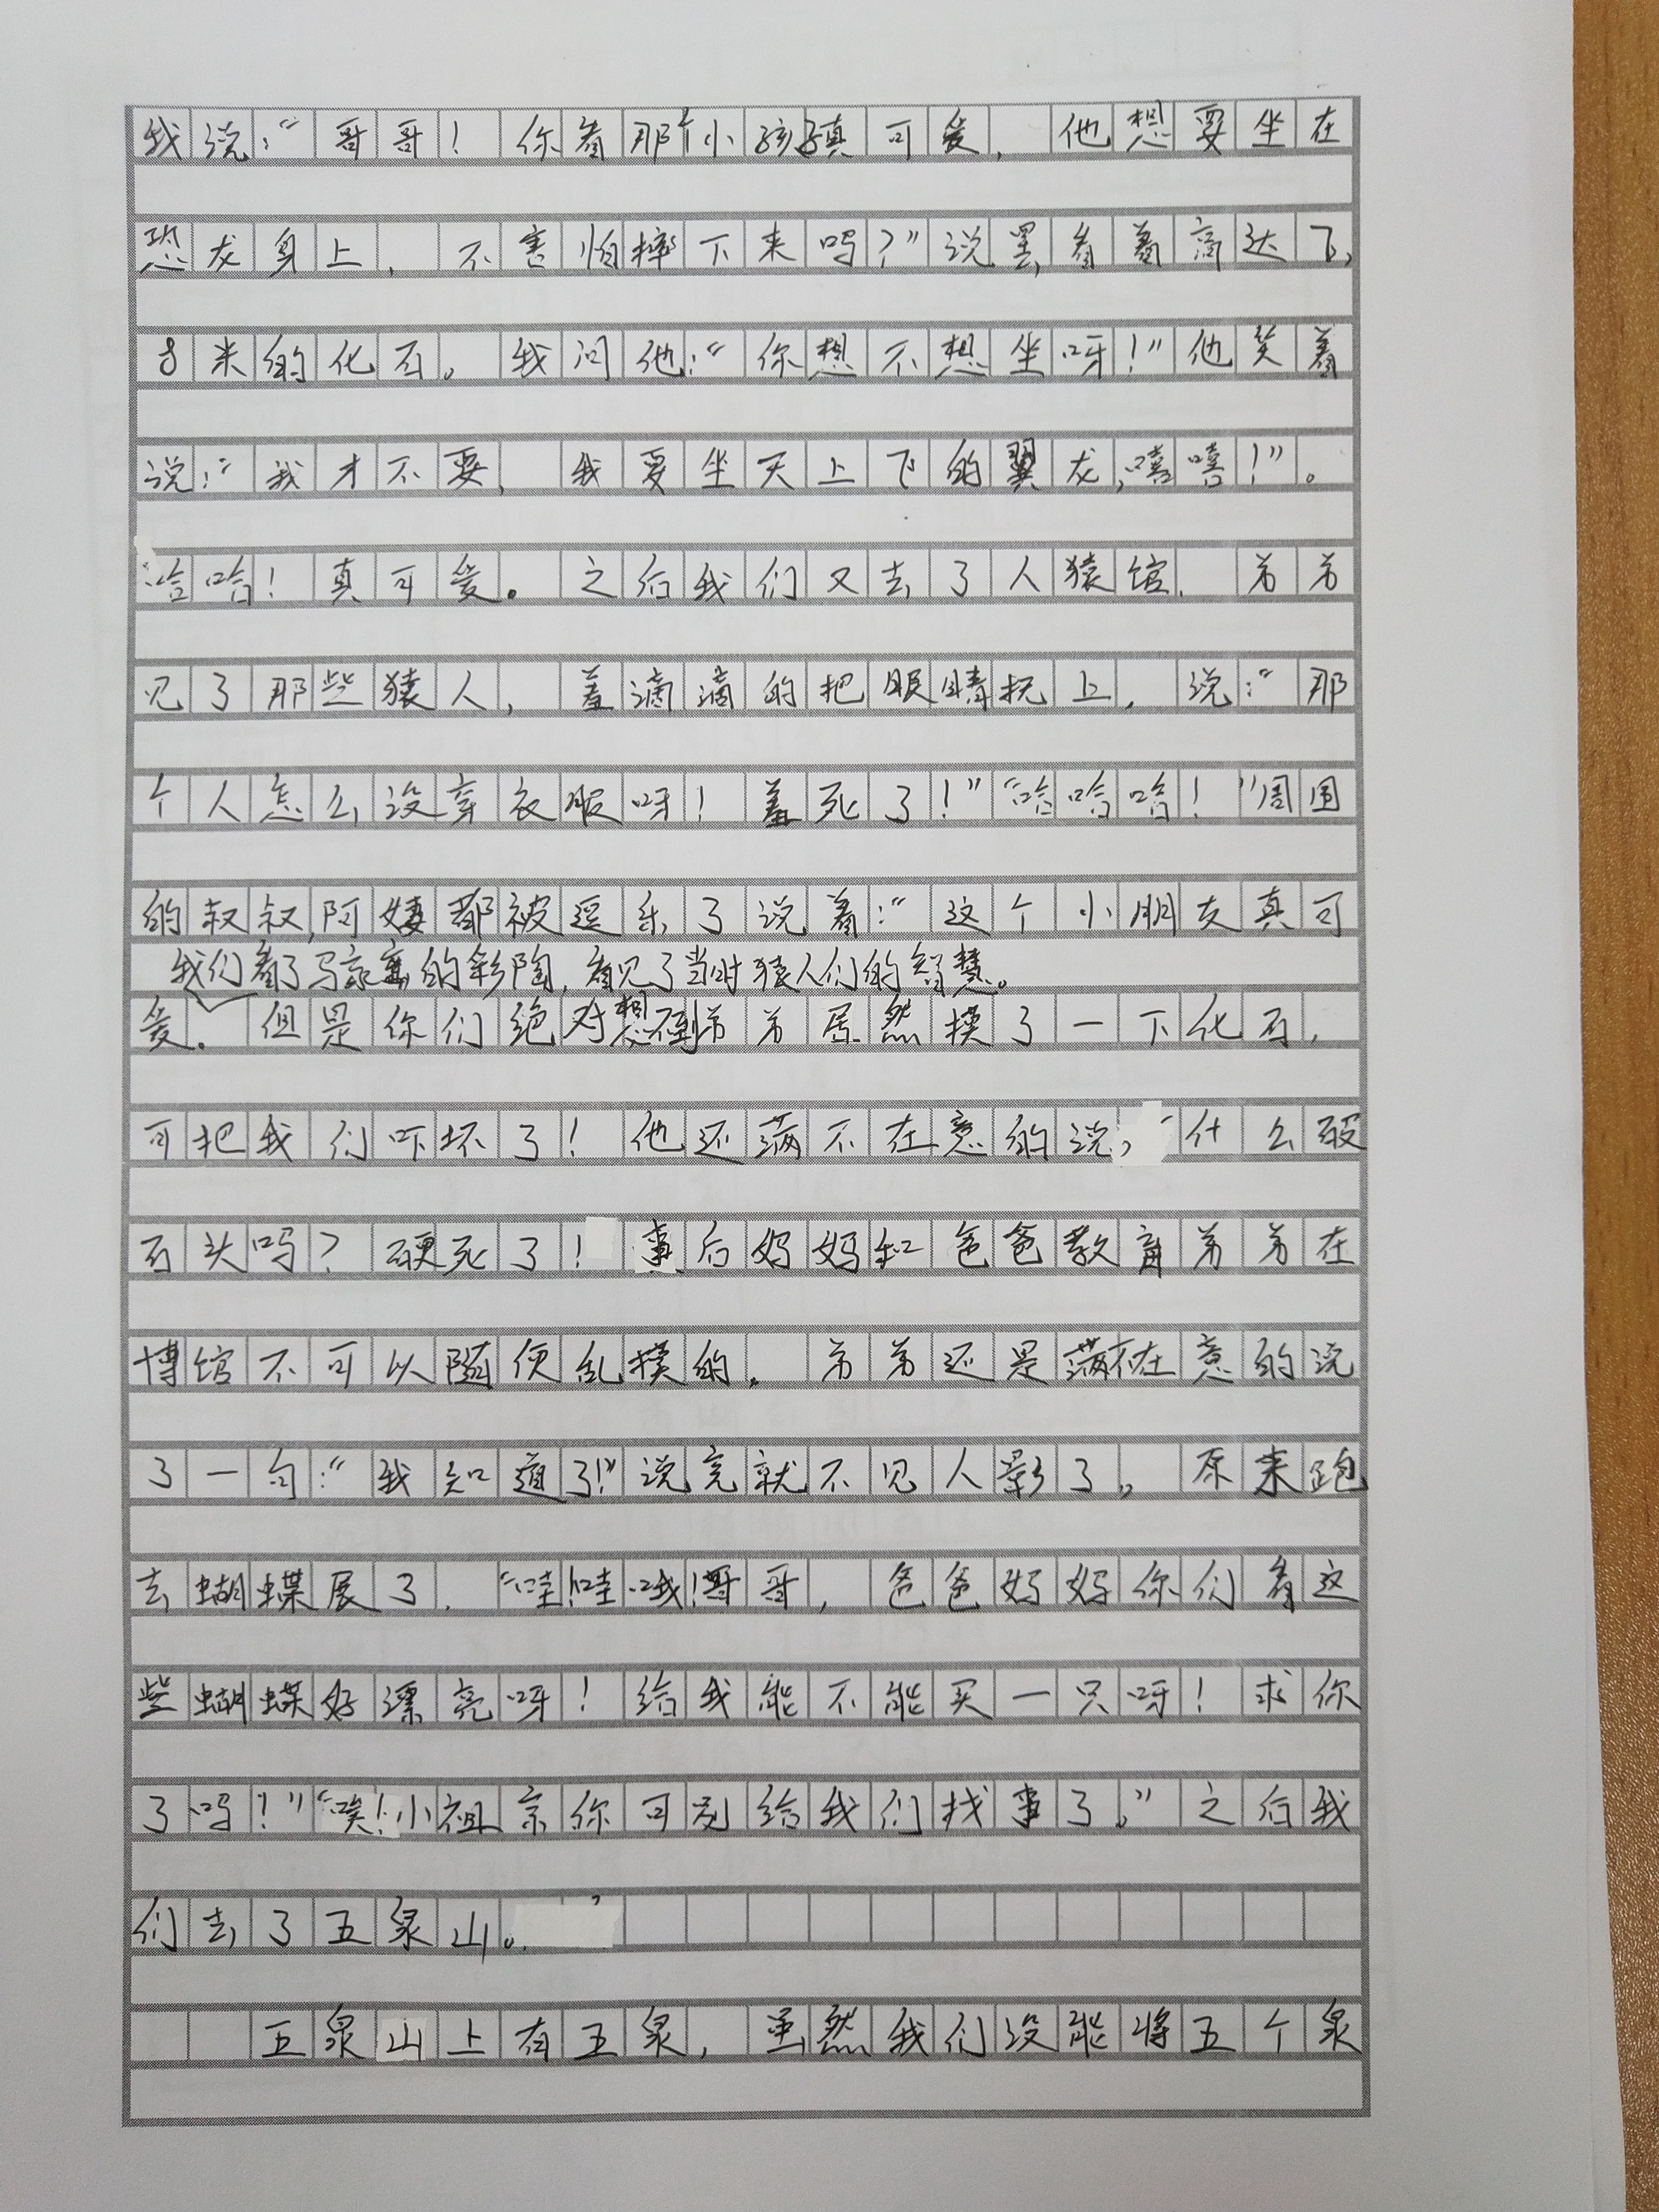 我说：“哥哥！你看那个小孩真可爱，他想要坐在
恐龙身上，不害怕摔下来吗？”说罢，看着高达
8米的化石。我问他：“你想不想坐呀！”他笑着
说：“我才不要，我要坐天上飞的翼龙，嘻嘻！”。
哈哈！真可爱。之后我们又去了人猿馆，弟弟
见了那些猿人，羞滴滴的把眼睛抚上，说：“那
个人怎么没穿衣服呀！羞死了！”“哈哈哈！”周围
的叔叔，阿姨都被逗乐了说着：“这个小朋友真可
我们看了马家窑的彩陶，看见了当时猿人们的智慧。
爱。但是你们绝对想不到弟弟居然摸了一下化石，
可把我们吓坏了！他还满不在意的说，“什么破
石头吗？硬死了！事后妈妈和爸爸教育弟弟在
博馆不可以随便乱摸的。弟弟还是满不在意的说
了一句：“我知道了！”说完就不见人影了。原来跑
去蝴蝶展了。“哇！哇哦！哥哥，爸爸妈妈你们看这
些蝴蝶好漂亮呀！给我能不能买一只呀！求你
了吗！”“唉！小祖宗你可别给我们找事了。”之后我
们去了五泉山。
五泉山上有五泉，虽然我们没能将五个泉